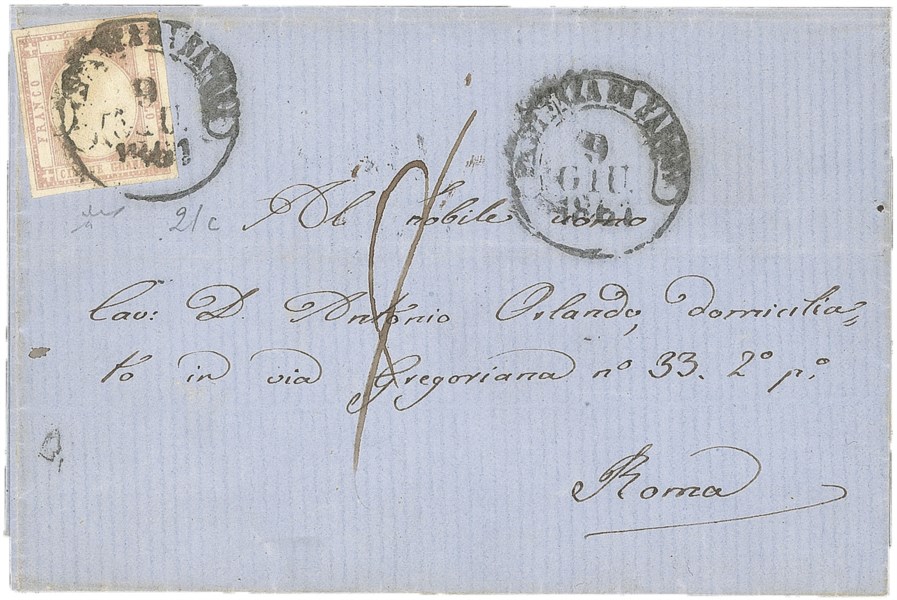 FRANCO
9
GIU
1861
9
GIU
21c
Al nobile uomo
Cav: D. Antonio Orlando, domicilia=
to in via Gregoriana nº 33. 2º pº.
Roma